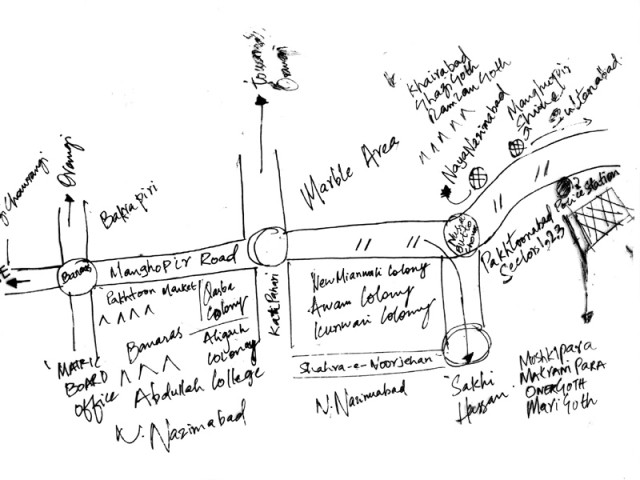 Towards
Khairabad
Ghazi Goth
Ramzan Goth
Manghopir
Shine
Sultanabad
Naya Nazimabad
Orangi
Bakra piri
Marble Area
Police Station
Pakhtoonabad
Sectors 1,2,3
Banaras
Manghopir Road
Pakhtoon Market
Qasba
Colony
Kati Pahari
New Mianwali Colony
Awam Colony
Kunwari Colony
Banaras
Aligarh
Colony
MATRIC
BOARD
Office
Abdullah College
N. Nazimabad
Shahra-e-Noorjehan
N. Nazimabad
Sakhi
Hassan
Moshkipara
Makrani PARA
OMERGOTH
Mari Goth